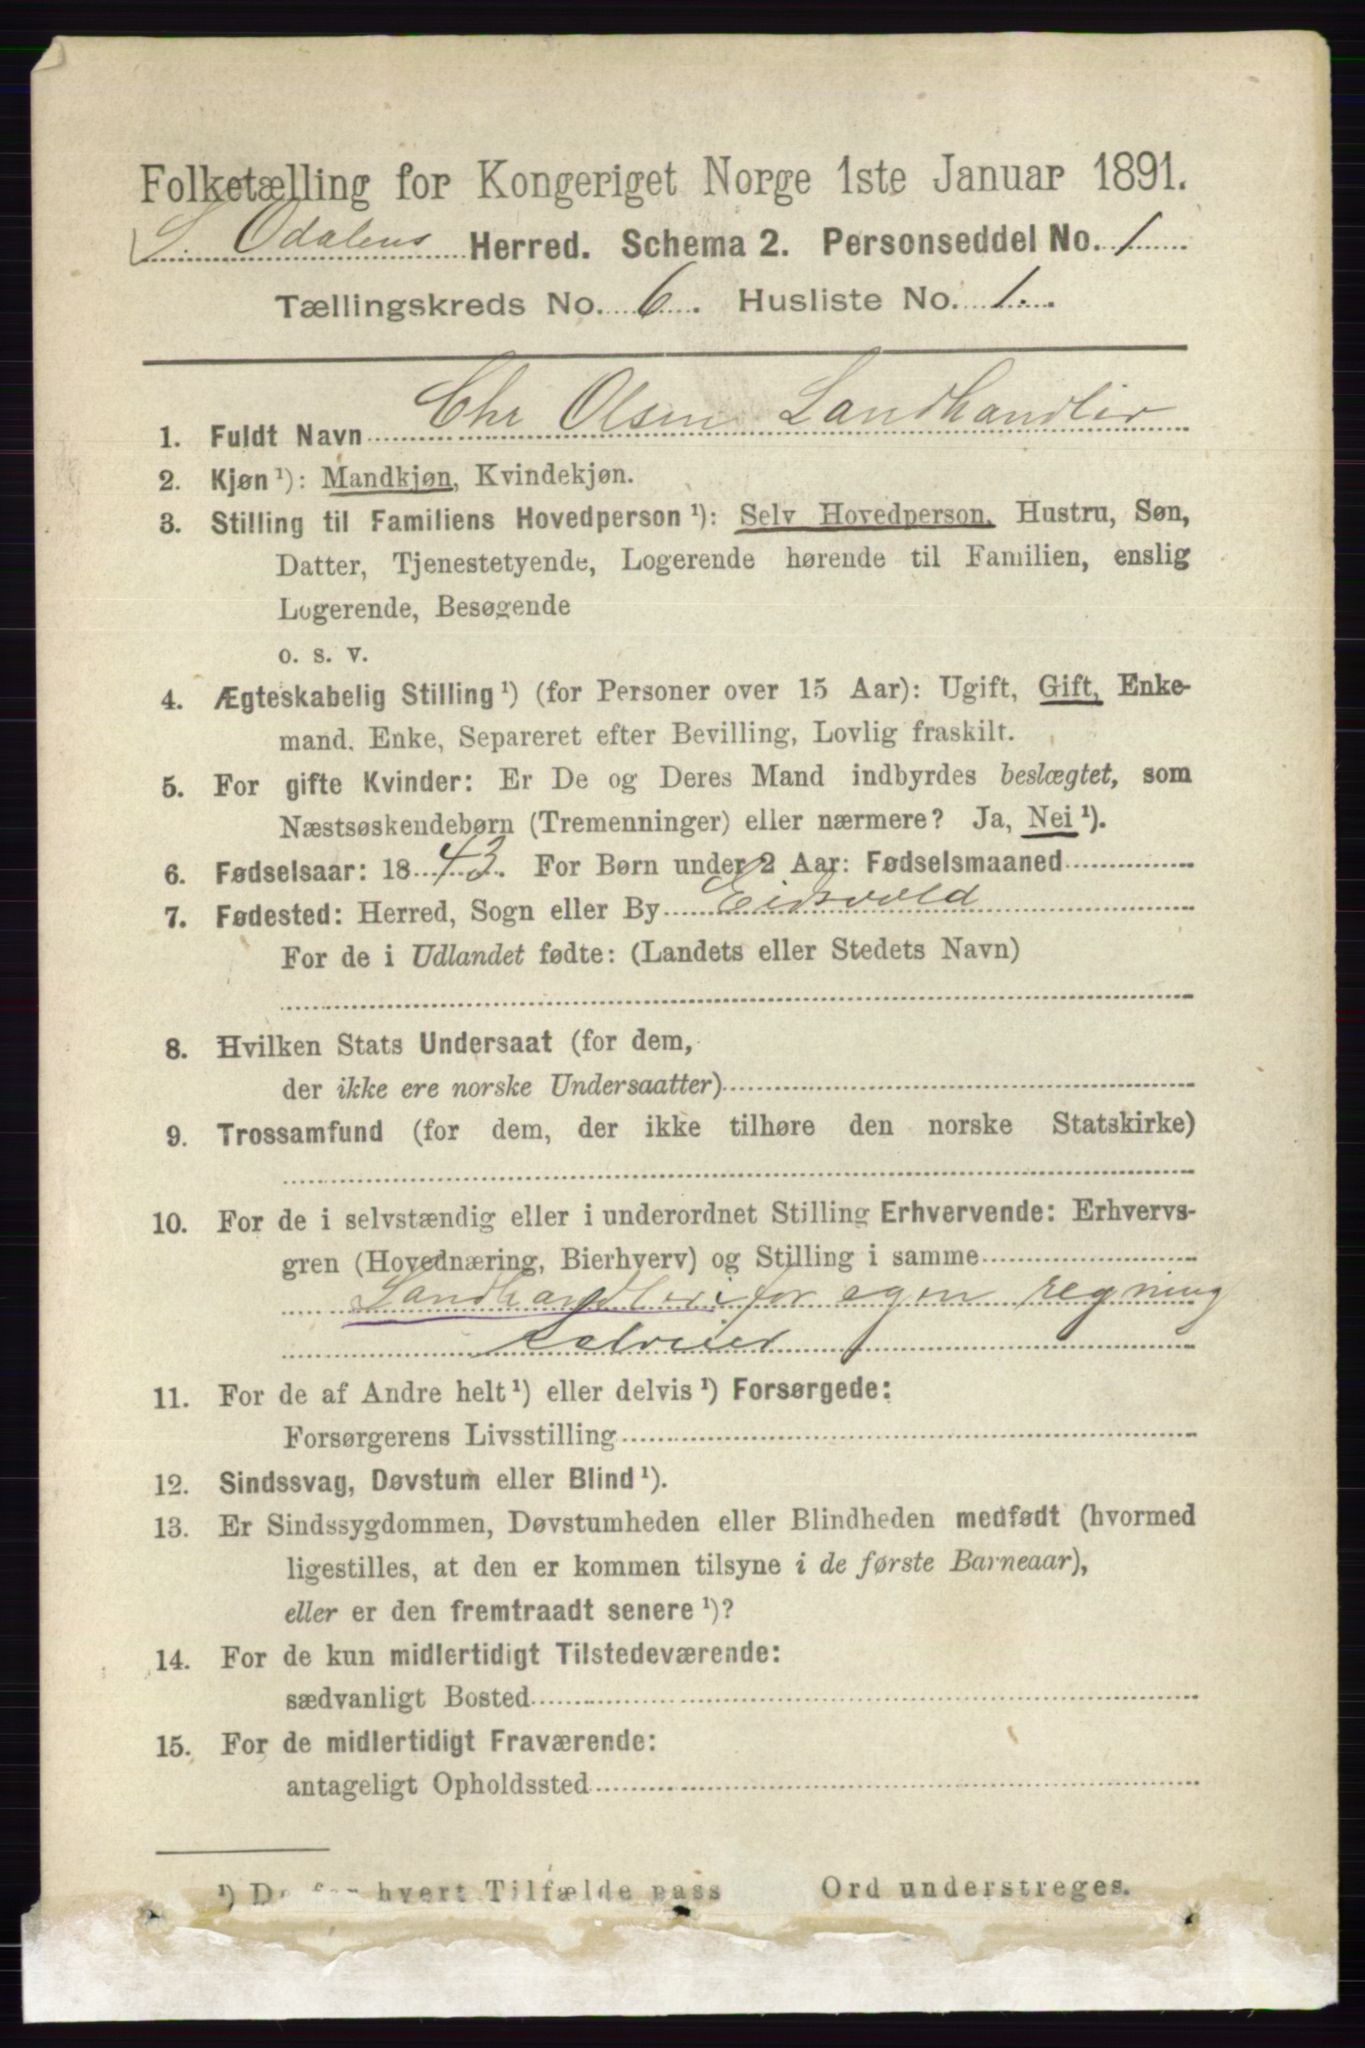 Folketælling for Kongeriget Norge 1ste Januar 1891.
S. Odalens Herred. Schema 2. Personseddel No. 1
Tællingskreds No. 6. Husliste No. 1.
1. Fuldt Navn Chr Olsen Landhandler
2. Kjøn ¹): Mandkjøn, Kvindekjøn.
3. Stilling til Familiens Hovedperson ¹): Selv Hovedperson, Hustru, Søn,
Datter, Tjenestetyende, Logerende hørende til Familien, enslig
Logerende, Besøgende
o. s. v.
4. Ægteskabelig Stilling ¹) (for Personer over 15 Aar): Ugift, Gift, Enke-
mand. Enke, Separeret efter Bevilling, Lovlig fraskilt.
5. For gifte Kvinder: Er De og Deres Mand indbyrdes beslægtet, som
Næstsøskendebørn (Tremenninger) eller nærmere? Ja, Nei ¹).
6. Fødselsaar: 1843. For Børn under 2 Aar: Fødselsmaaned
7. Fødested: Herred, Sogn eller By Eidsvold
For de i Udlandet fødte: (Landets eller Stedets Navn)
8. Hvilken Stats Undersaat (for dem,
der ikke ere norske Undersaatter)
9. Trossamfund (for dem, der ikke tilhøre den norske Statskirke)
10. For de i selvstændig eller i underordnet Stilling Erhvervende: Erhvervs-
gren (Hovednæring, Bierhverv) og Stilling i samme
Landhandleri for egen regning
11. For de af Andre helt ¹) eller delvis ¹) Forsørgede:
Forsørgerens Livsstilling
12. Sindssvag, Døvstum eller Blind ¹).
13. Er Sindssygdommen, Døvstumheden eller Blindheden medfødt (hvormed
ligestilles, at den er kommen tilsyne i de første Barneaar),
eller er den fremtraadt senere ¹)?
14. For de kun midlertidigt Tilstedeværende:
sædvanligt Bosted
15. For de midlertidigt Fraværende:
antageligt Opholdssted
¹) De for hvert Tilfælde pass Ord understreges.